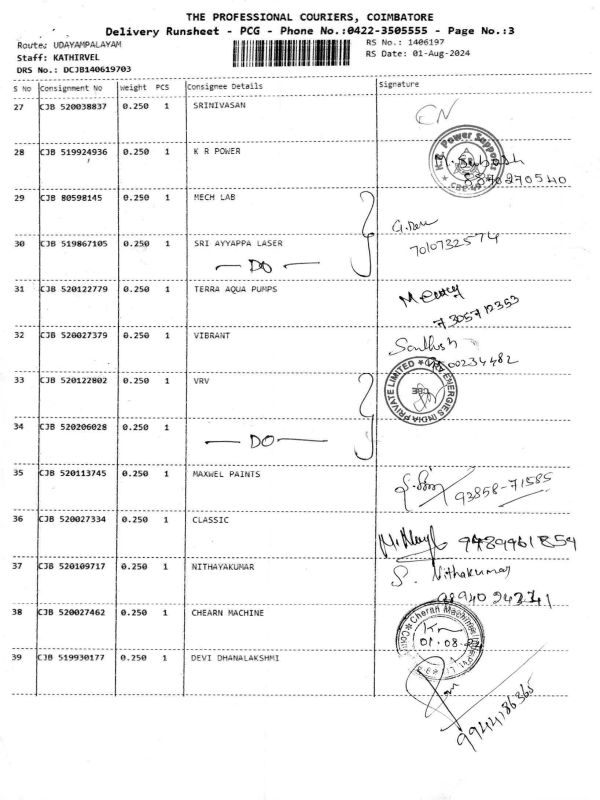 THE PROFESSIONAL COURIERS, COIMBATORE
Delivery Runsheet - PCG - Phone No.:0422-3505555 - Page No.:3
Route: UDAYAMPALAYAM RS No.: 1406197
Staff: KATHIRVEL RS Date: 01-Aug-2024
DRS No.: DCJB140619703
S No Consignment No Weight PCS Consignee Details Signature
27 CJB 520038837 0.250 1 SRINIVASAN CN
28 CJB 519924936 0.250 1 K R POWER
Power Support
29 CJB 80598145 0.250 1 MECH LAB
30 CJB 519867105 0.250 1 SRI AYYAPPA LASER 7010732574
— DO —
31 CJB 520122779 0.250 1 TERRA AQUA PUMPS
7305712353
32 CJB 520027379 0.250 1 VIBRANT Santhosh
00234482
33 CJB 520122802 0.250 1 VRV
VRV ENERGIES INDIA PRIVATE LIMITED
CBE
34 CJB 520206028 0.250 1
— DO —
35 CJB 520113745 0.250 1 MAXWEL PAINTS 93858-71585
36 CJB 520027334 0.250 1 CLASSIC 9489961859
37 CJB 520109717 0.250 1 NITHAYAKUMAR S. Nithakumar
38 CJB 520027462 0.250 1 CHEARN MACHINE
Cheran Machines
01.08.24
39 CJB 519930177 0.250 1 DEVI DHANALAKSHMI
9944186365